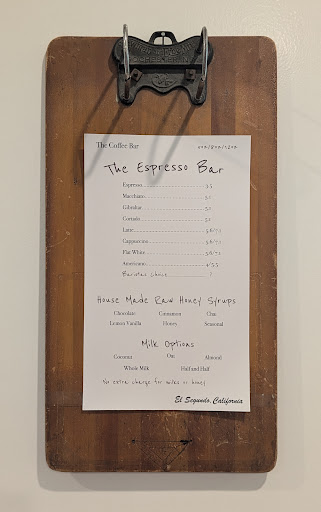 The Coffee Bar
The Espresso Bar
Espresso
Macchiato
Gibraltar
Cortado
Latte
Cappuccino
Flat White
Americano
Baristas Choice
House Made Raw Honey Syrups
Chocolate Cinnamon Chai
Lemon Vanilla Honey Seasonal
Milk Options
Coconut Oat Almond
Whole Milk Half and Half
No extra charge for milks or honey
El Segundo, California